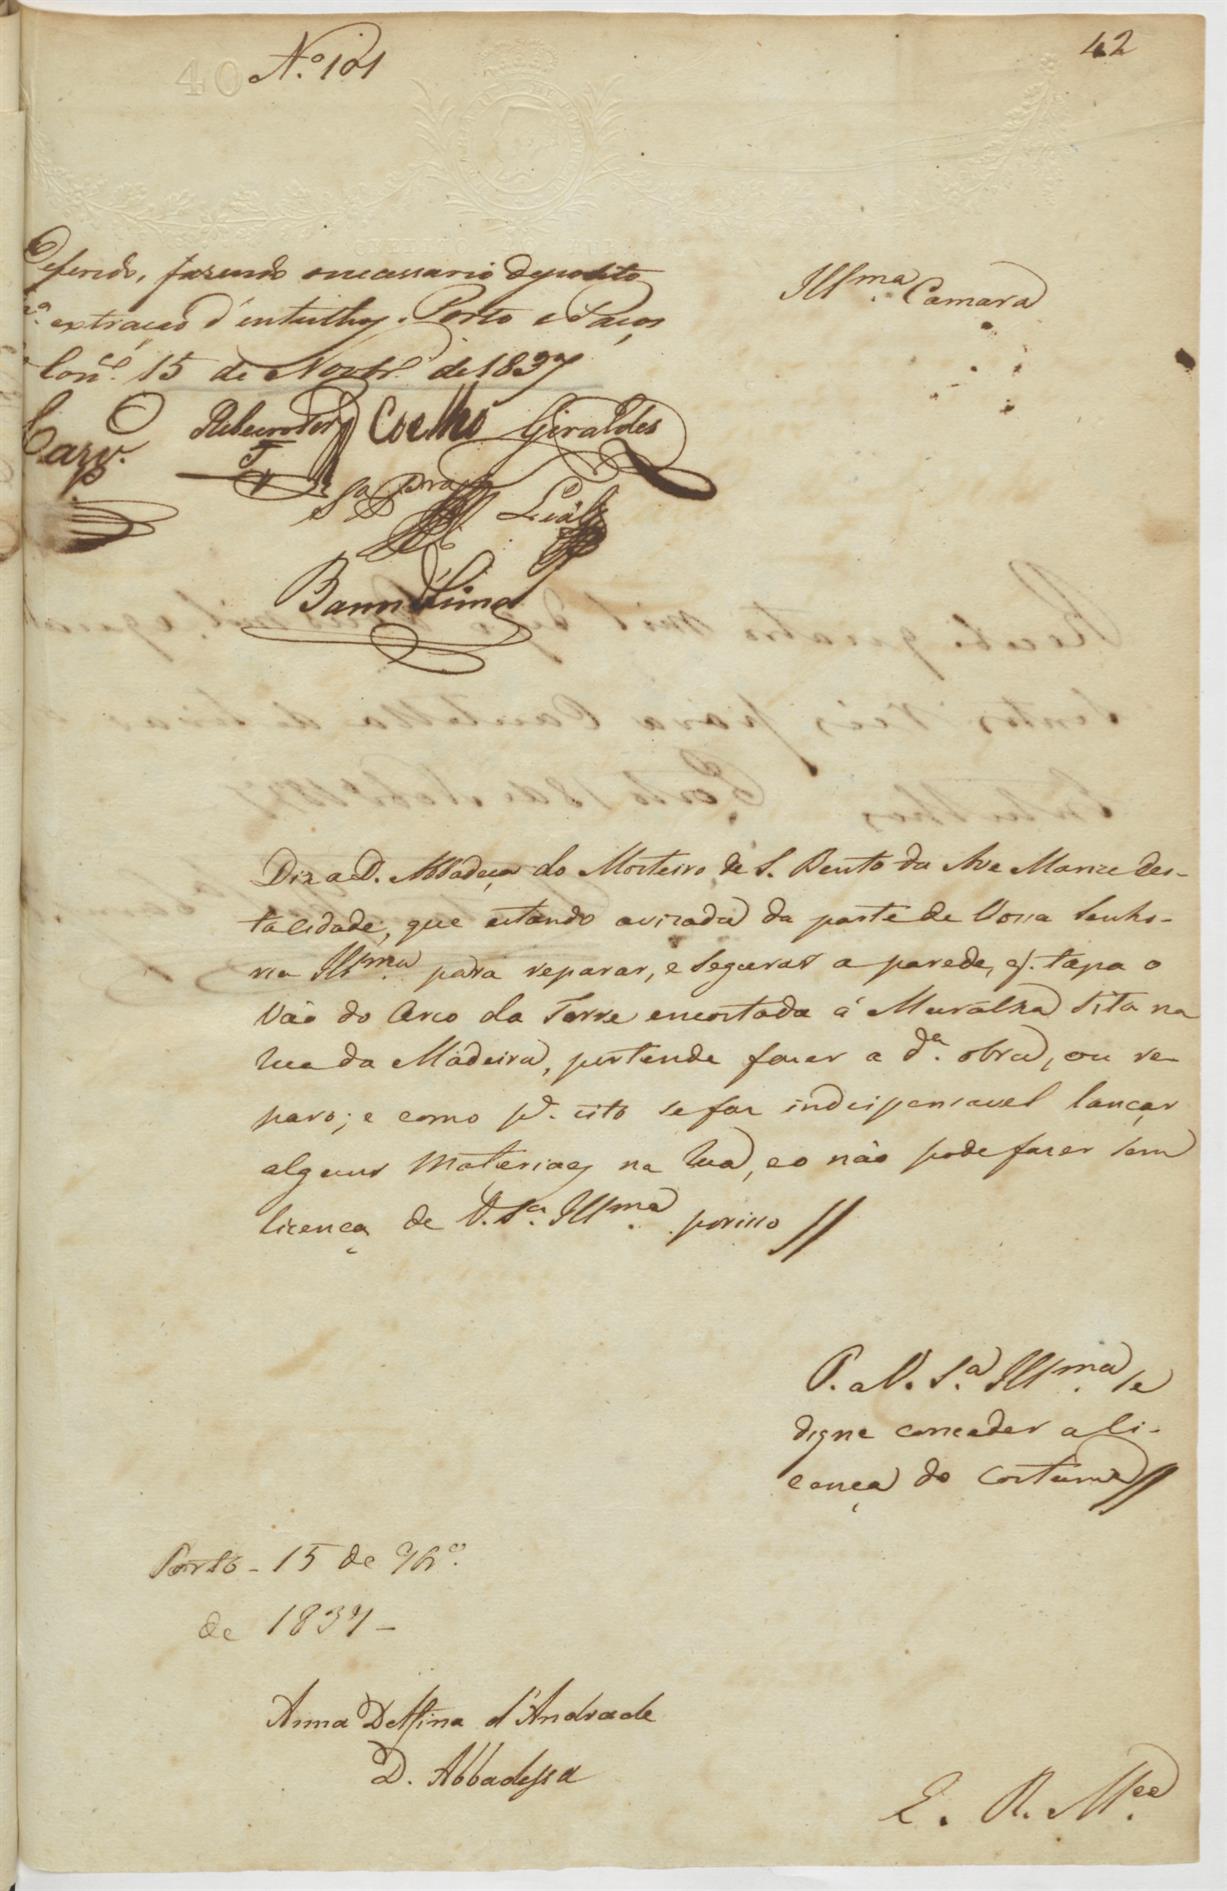 N.º 101
42
Deferido, fazendo o necessario deposito
pª. extração d'entulhos. Porto e Paços
do Conc.º 15 de Novbr.º de 1837
Illma. Camara
Carv.º
Ribeiro Coelho Giraldes
Sª Prª Leal
Lima
Diz a D. Abbadeça do Mosteiro de S. Bento da Ave Maria des-
ta Cidade, que estando avizada da parte de Vossa Senho-
ria Illma. para reparar, e segurar a parede, q. tapa o
Vão do Arco da Torre encostada á Muralha Sita na
Rua da Madeira, pertende fazer a dª. obra, ou re-
paro; e como pª. isto se faz indispensavel lançar
alguns Materiaes na Rua, e o não pode fazer sem
licença de V. Sª. Illma. porisso //
P. a V. Sª. Illma. se
digne conceder a li-
cença do costume //
Porto - 15 de 9bro.
de 1837 -
Anna Delfina d'Andrade
D. Abbadessa
E. R. Mce.